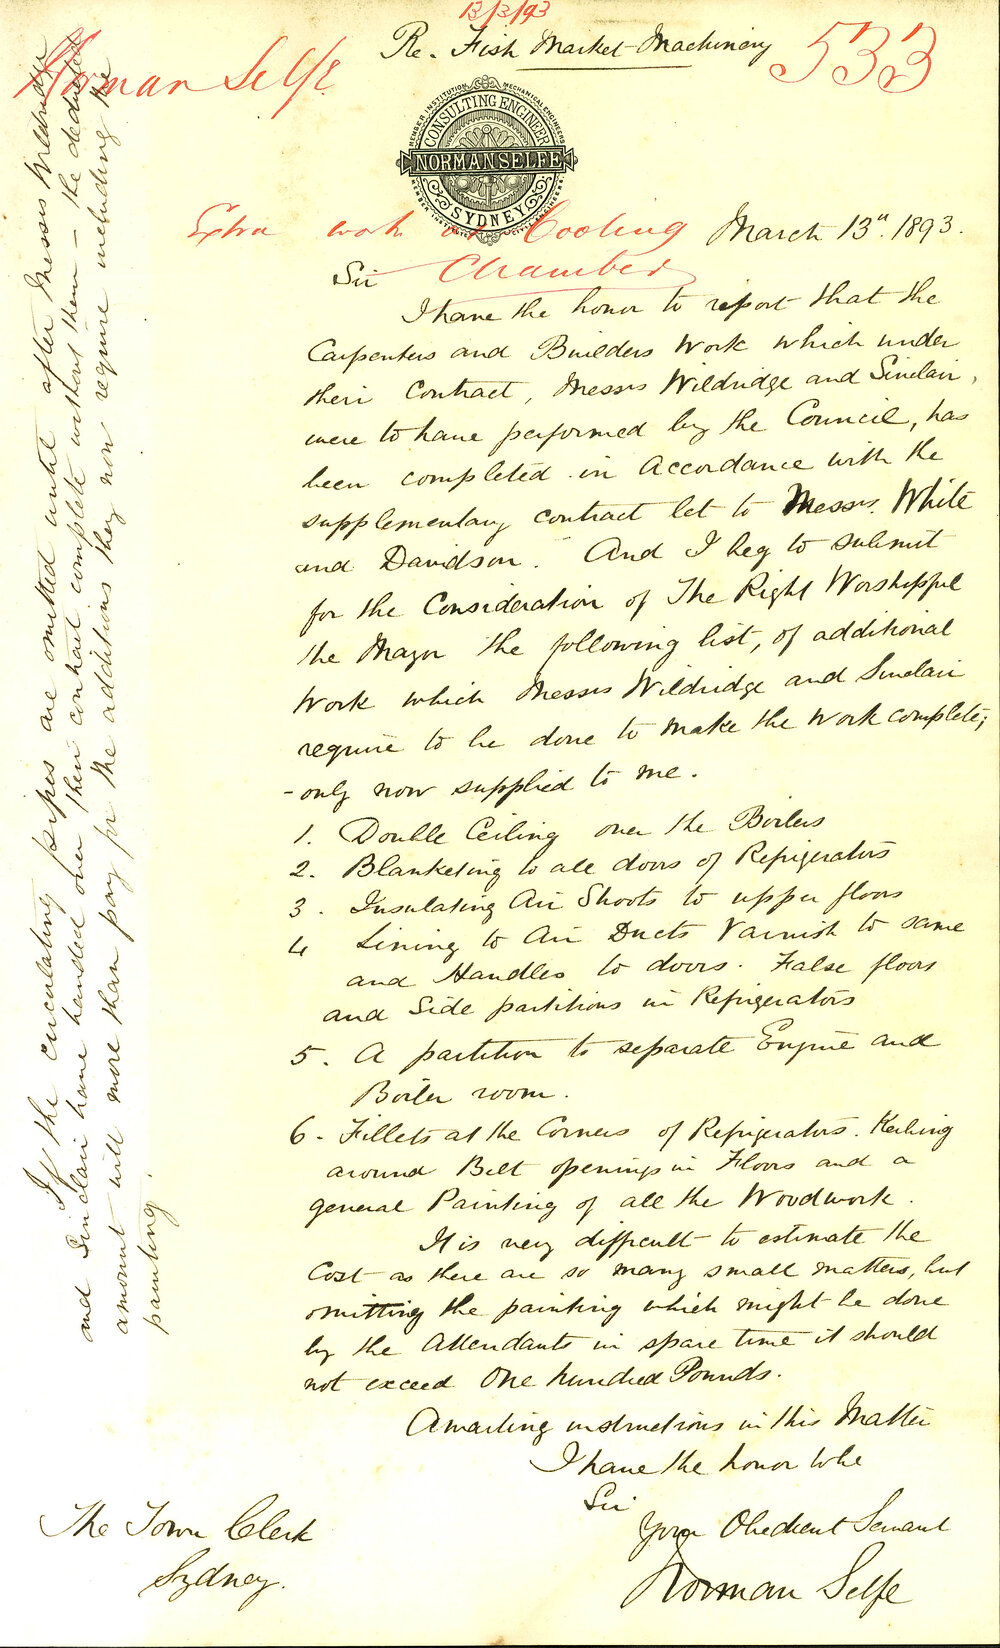 13/3/93
Re. Fish Market Machinery
533
Norman Selfe
MEMBER INSTITUTION MECHANICAL ENGINEERS
CONSULTING ENGINEER
NORMAN SELFE
SYDNEY
Extra work on Cooling
Chamber
March 13th. 1893.
Sir
I have the honor to report that the
Carpenters and Builders Work which under
their Contract, Messrs Wildridge and Sinclair,
were to have performed by the Council, has
been completed in Accordance with the
supplementary contract let to Messrs. White
and Davidson. And I beg to submit
for the Consideration of The Right Worshipful
the Mayor the following list, of additional
Work which Messrs Wildridge and Sinclair
require to be done to make the Work complete;
- only now supplied to me.
1. Double Ceiling over the Boilers
2. Blanketing to all doors of Refrigerators
3. Insulating Air Shoots to upper floors
4 Lining to Air Ducts Varnish to same
and Handles to doors. False floors
and Side partitions in Refrigerators
5. A partition to separate Engine and
Boiler room.
6. Fillets at the Corners of Refrigerators. Kerbing
around Belt openings in Floors and a
general Painting of all the Woodwork.
It is very difficult to estimate the
Cost as there are so many small matters, but
omitting the painting which might be done
by the Attendants in spare time it should
not exceed One hundred Pounds.
Awaiting instructions in this Matter
I have the honor to be
Sir
Your Obedient Servant
Norman Selfe
The Town Clerk
Sydney.
If the circulating pipes are omitted until after Messrs Wildridge
and Sinclair have handed over their contract complete without them – the deducted
amount will more than pay for the additions they now require including the
painting.